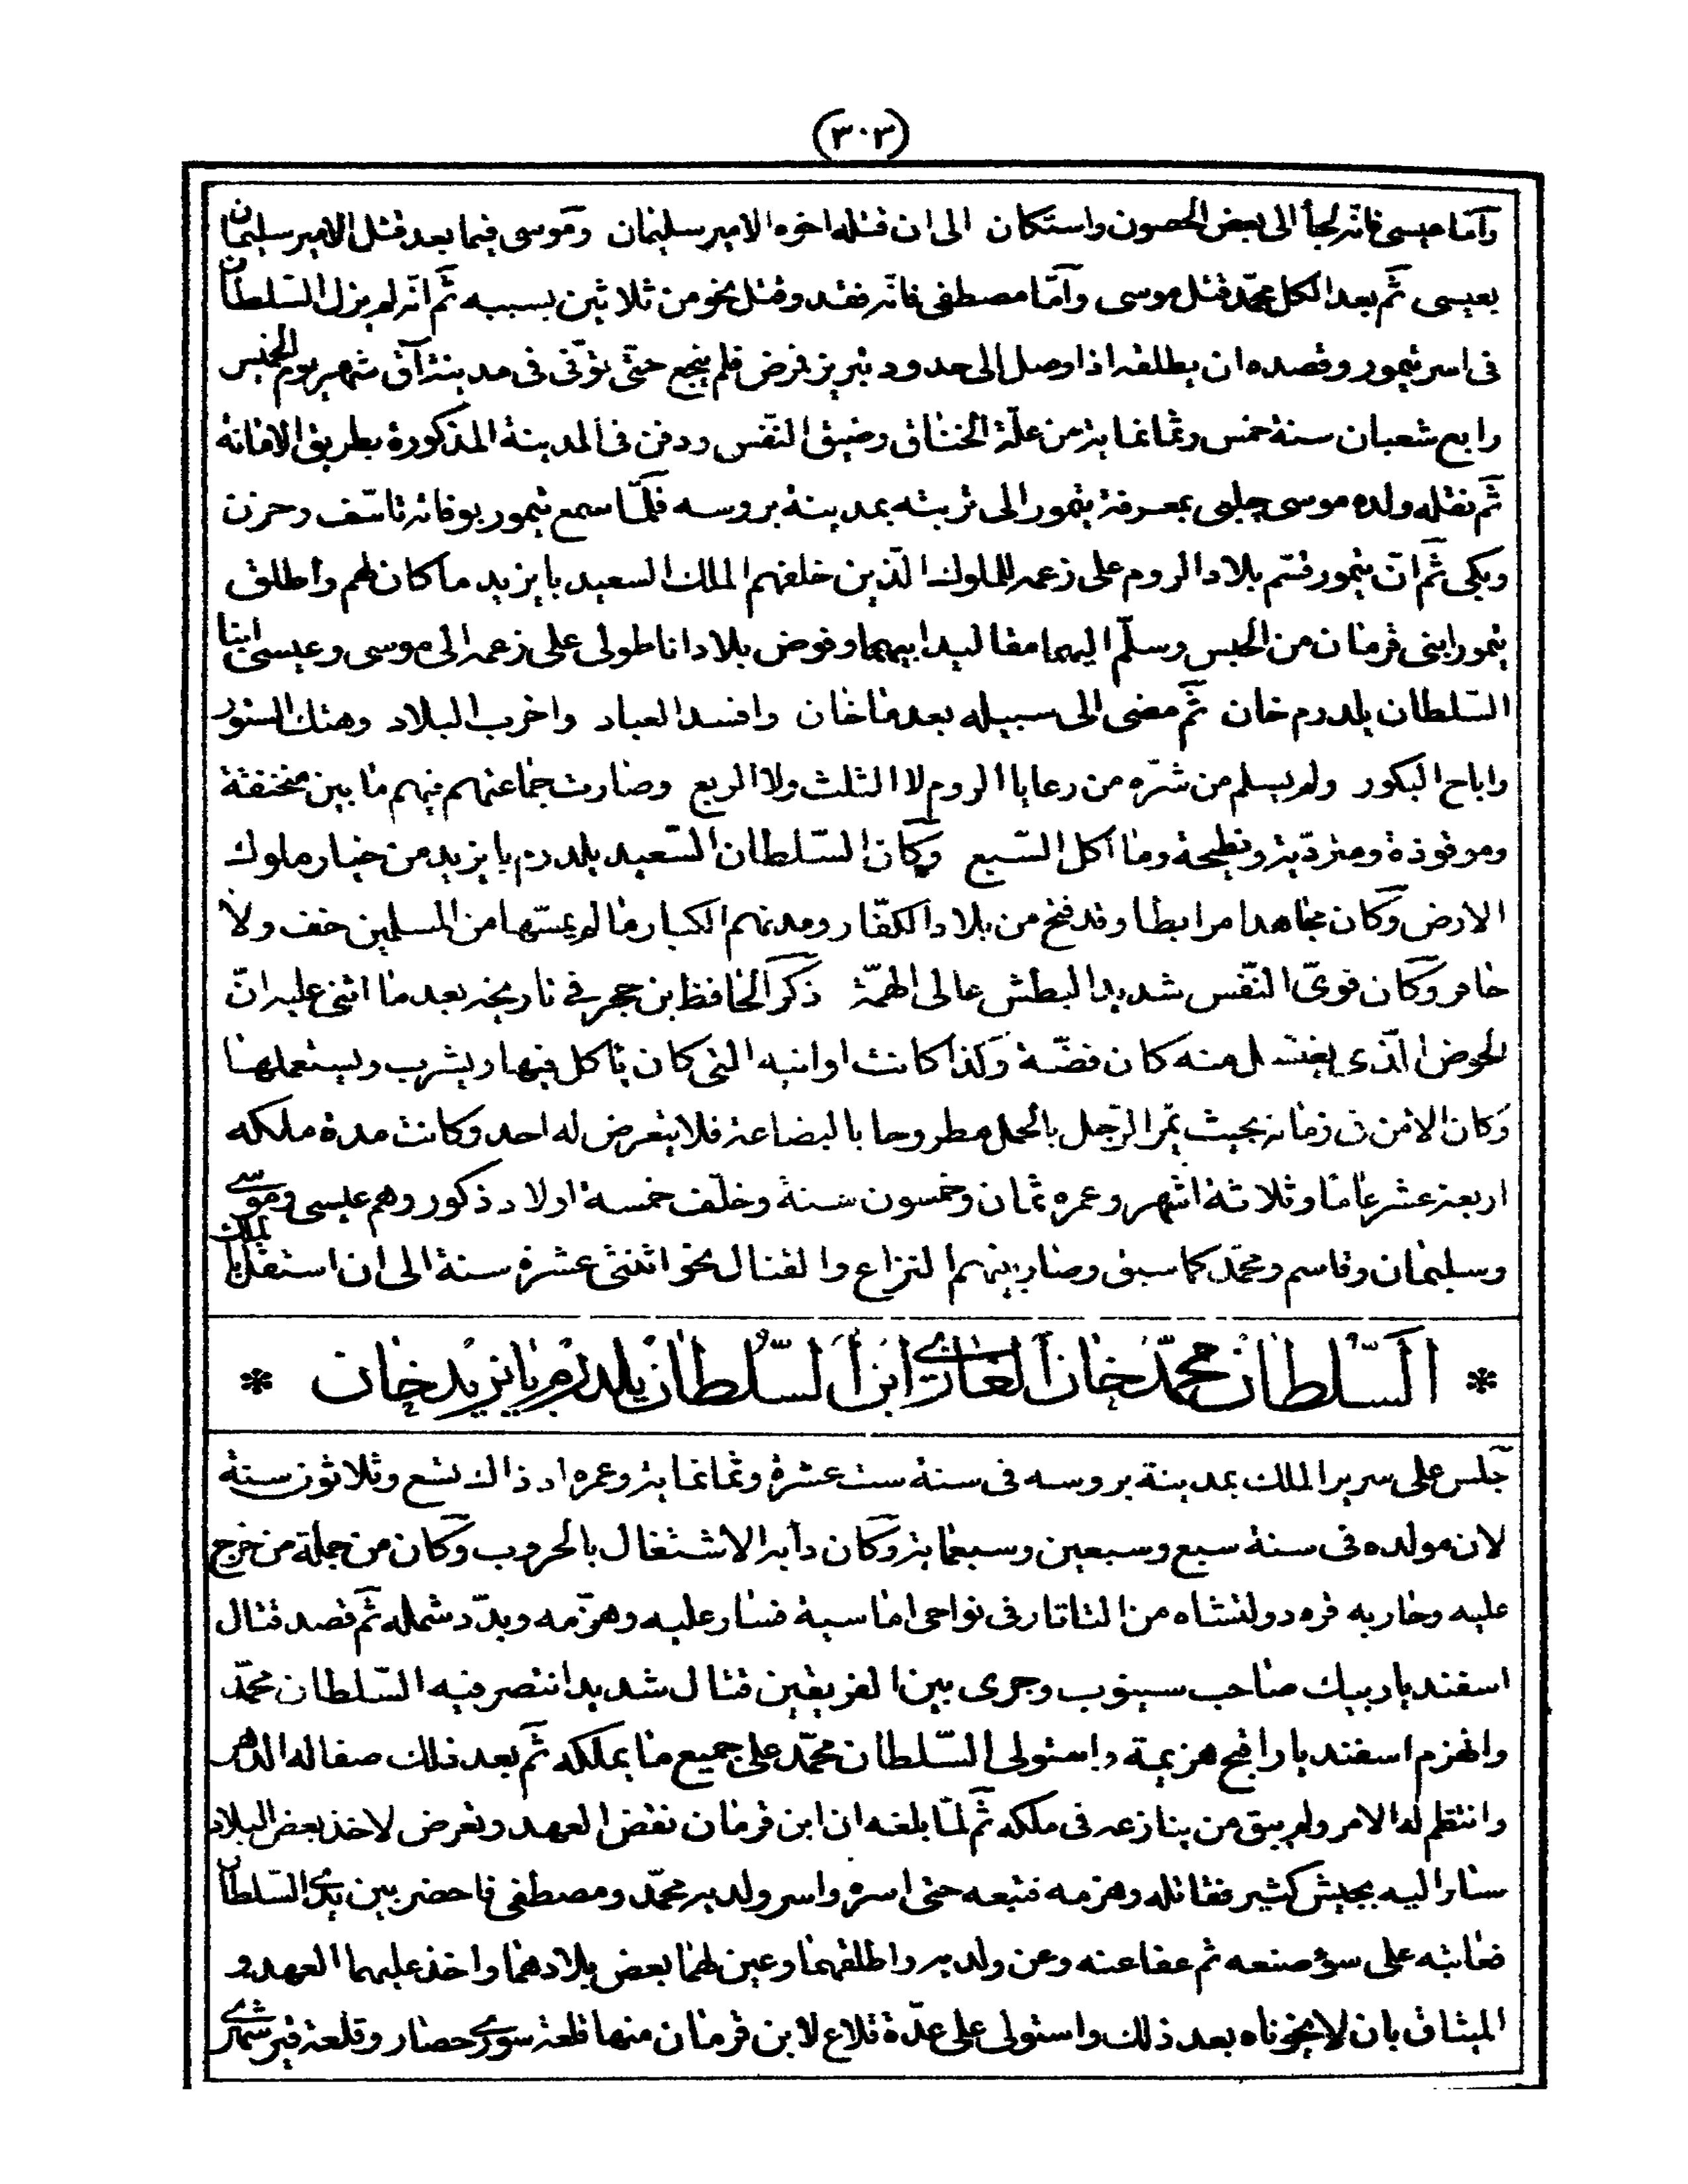 (٣٠٣)
وامّا عيسى فانّه لجأ الى بعض الحصون واستكان الى ان قتله اخوه الامير سليمان وموسى فيما بعد قتل الامير سليمان
بعيسى ثمّ بعد الكل محمّد قتل موسى وامّا مصطفى فانّه فقد وقتل نحو من ثلاثين بسببه ثمّ انّه لم يزل السّلطان
فى اسر تيمور وقصده ان يطلقه اذا وصل الى حدود تبريز فرض فلم ينجع حتّى توّفى فى مدينة آق شهر يوم الخميس
رابع شعبان سنة خمس وثمانماية من علّة الخناق وضيق النّفس ودفن فى المدينة المذكورة بطريق الامانة
ثمّ نقله ولده موسى چلبى بمعرفة تيمور الى تربته بمدينة بروسه فلّما سمع تيمور بوفاته تاسّف وحزن
وبكى ثمّ انّ تيمور قسّم بلاد الروم على زعمه للملوك الّذين خلفهم الملك السعيد بايزيد ما كان لهم واطلق
تيمور ابنى قرمان من الحبس وسلّم اليهما مقاليد ابيهما وفوض بلاد اناطولى على زعمه الى موسى وعيسى ابنا
السّلطان يلدرم خان ثمّ مضى الى سبيله بعدما خان وافسد العباد واخرب البلاد وهتك الستور
واباح البكور ولم يسلم من شرّه من رعايا الروم لا الثلث ولا الربع وصارت جماعتهم فيهم ما بين منخنقة
وموقوذة ومتردّية ونطيحة وما اكل السّبع وكان السّلطان السّعيد يلدرم بايزيد من خيار ملوك
الارض وكان مجاهدا مرابطا وقد فتح من بلاد الكفّار ومدنهم الكبار ما لم يمسّها من المسلمين خف ولا
حافر وكان قوىّ النّفس شديد البطش عالى الهمّة ذكر الحافظ بن حجر فى تاريخه بعد ما اثنى عليه انّ
الحوض الّذى يغتسل منه كان فضّة وكذا كانت اوانيه التى كان ياكل فيها ويشرب ويستعملها
وكان الامن فى زمانه بحيث يمّر الرّجل بالحمل مطروحا بالبضاعة فلا يتعرض له احد وكانت مدة ملكه
اربعة عشر عاما وثلاثة اشهر وعمره ثمان وخمسون سنة وخلّف خمسة اولاد ذكور وهم عيسى وموسى
وسليمان وقاسم ومحمّد كما سبق وصار بينهم النزاع والقتال نحو اثنتى عشرة سنة الى ان استقل بالملك
* السّلطان محمّد خان الغازى ابن السّلطان يلدرم بايزيد خان *
جلس على سرير الملك بمدينة بروسه فى سنة ست عشرة وثمانماية وعمره اذ ذاك تسع وثلاثون سنة
لان مولده فى سنة سبع وسبعين وسبعماية وكان دأبه الاشتغال بالحروب وكان من جملة من خرج
عليه وحاربه قره دولتشاه من التاتار فى نواحى اماسية فسار عليه وهزّمه وبدّد شمله ثمّ قصد قتال
اسفنديار بيك صاحب سينوب وجرى بين الفريقين قتال شديد انتصر فيه السّلطان محمّد
وانهزم اسفنديار اقبح هزيمة واستولى السّلطان محمّد على جميع ما يملكه ثمّ بعد ذلك صفا له الدهر
وانتظم له الامر ولم يبق من ينازعه فى ملكه ثمّ لمّا بلغه ان ابن قرمان نقض العهد وتعرض لاخذ بعض البلاد
سار اليه بجيش كثير فقاتله وهزمه فتبعه حتى اسره واسر ولديه محمّد ومصطفى فاحضر بين يدى السّلطان
فعاتبه على سوء صنعه ثم عفا عنه وعن ولديه واطلقهما وعين لهما بعض بلادهما واخذ عليهما العهد و
الميثاق بان لا يخوناه بعد ذلك واستولى على عدّة قلاع لابن قرمان منها قلعة سورى حصار وقلعة قير شهرى